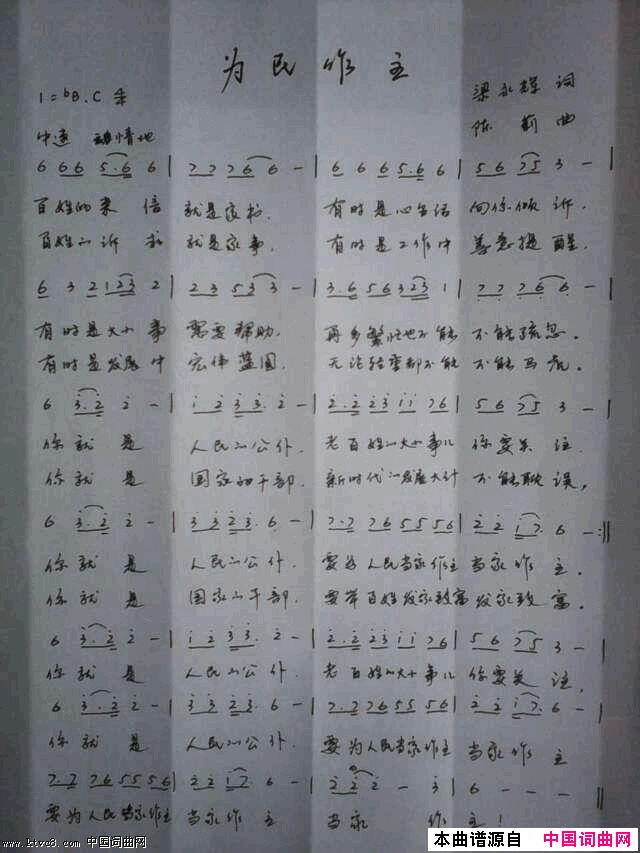 为民作主
1=ᵇB.C 4
梁永辉 词
中速 动情地
陈莉 曲
6 66 5·6 6 | 7 7 7 6 6 | 6 6 6 5·6 6 | 5 6 75 3 — |
百姓的来信 就是家书. 有时是心生活 向你倾诉.
百姓的诉求 就是家事. 有时是工作中 善意提醒.
6 3 2 123 2 | 2 3 5 3 3 — | 3·6 56 323 1 | 7 7 7 6 6 — |
有时是大小事 需要帮助. 再多繁忙也不能 不能疏忽.
有时是发展中 宏伟蓝图. 不能马虎.
6 3·2 2 — | 1 2 3 3·2 — | 2·2 23 11 76 | 5 6 75 3 — |
你就是 人民的公仆. 老百姓的大小事儿 你要关注.
你就是 国家的干部. 新时代的发展大计 不能耽误,
6 3·2 2 — | 3 3 23·6 — | 7·7 76 55 56 | 2 2 17·6 — :||
你就是 人民的公仆. 要为人民当家作主 当家作主.
你就是 国家的干部. 要带百姓发家致富 发家致富.
6 3·2 2 — | 1 2 33·2 — | 2·2 23 11 76 | 5 6 75 3 — |
你就是 人民的公仆. 老百姓的大小事儿 你要关注,
6 3·2 2 — | 3 3 23·6 — | 7·7 76 55 56 | 2 2 17·6 — |
你就是 人民的公仆. 要为人民当家作主 当家作主
7·7 76 55 56 | 2 2 17 6 — | 2 2 2 — 3 | 6 — — — ||
要为人民当家作主 当家作主 当家作主!
www.ktvc8.com 中国词曲网
本曲谱源自 中国词曲网